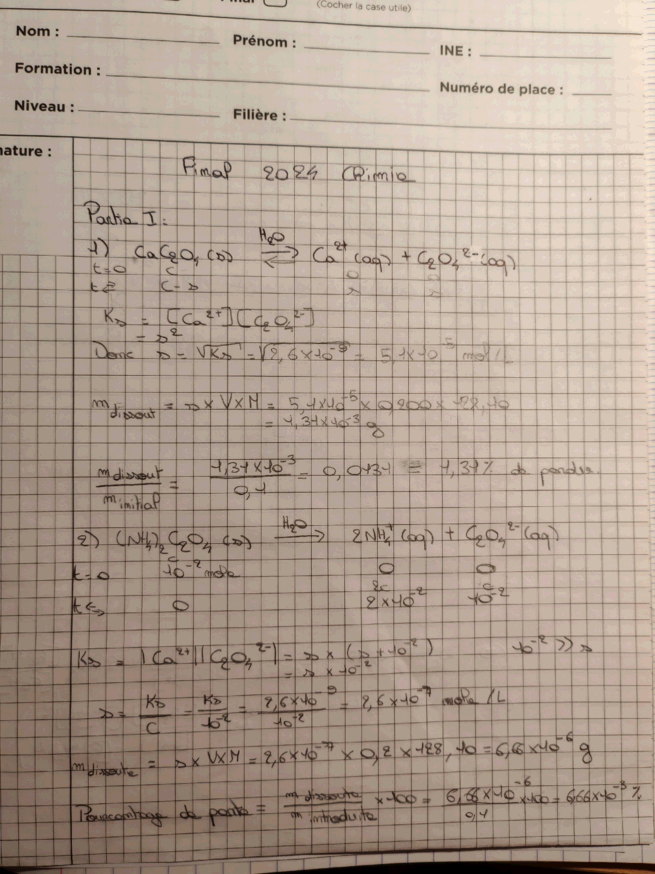 (Cocher la case utile)
Nom :
Prénom :
INE :
Formation :
Numéro de place :
Niveau :
Filière :
nature :
Final 2024 Chimie
Partie I :
1) CaC₂O₄ (s) ⇌ H₂O Ca²⁺ (aq) + C₂O₄²⁻ (aq)
t=0 C 0 0
C-s s s
Ks = [Ca²⁺][C₂O₄²⁻]
= s²
Donc s = √Ks = √2,6×10⁻⁹ = 5,1×10⁻⁵ mol/L
m dissout = s × V × M = 5,1×10⁻⁵ × 0,200 × 128,10
= 1,31×10⁻³ g
m dissout / m initial = 1,31×10⁻³ / 0,1 = 0,0131 = 1,31% de pertes.
2) (NH₄)₂C₂O₄ (s) →H₂O 2NH₄⁺ (aq) + C₂O₄²⁻ (aq)
t=0 C 10⁻² mole 0 0
0 2C 2×10⁻² C 10⁻²
Ks = [Ca²⁺][C₂O₄²⁻] = s × (s + 10⁻²) 10⁻² >> s
= s × 10⁻²
s = Ks / C = Ks / 10⁻² = 2,6×10⁻⁹ / 10⁻² = 2,6×10⁻⁷ mole/L
m dissoute = s × V × M = 2,6×10⁻⁷ × 0,2 × 128,10 = 6,66×10⁻⁶ g
Pourcentage de perte = m dissoute / m introduite × 100 = 6,66×10⁻⁶ / 0,1 × 100 = 6,66×10⁻³ %